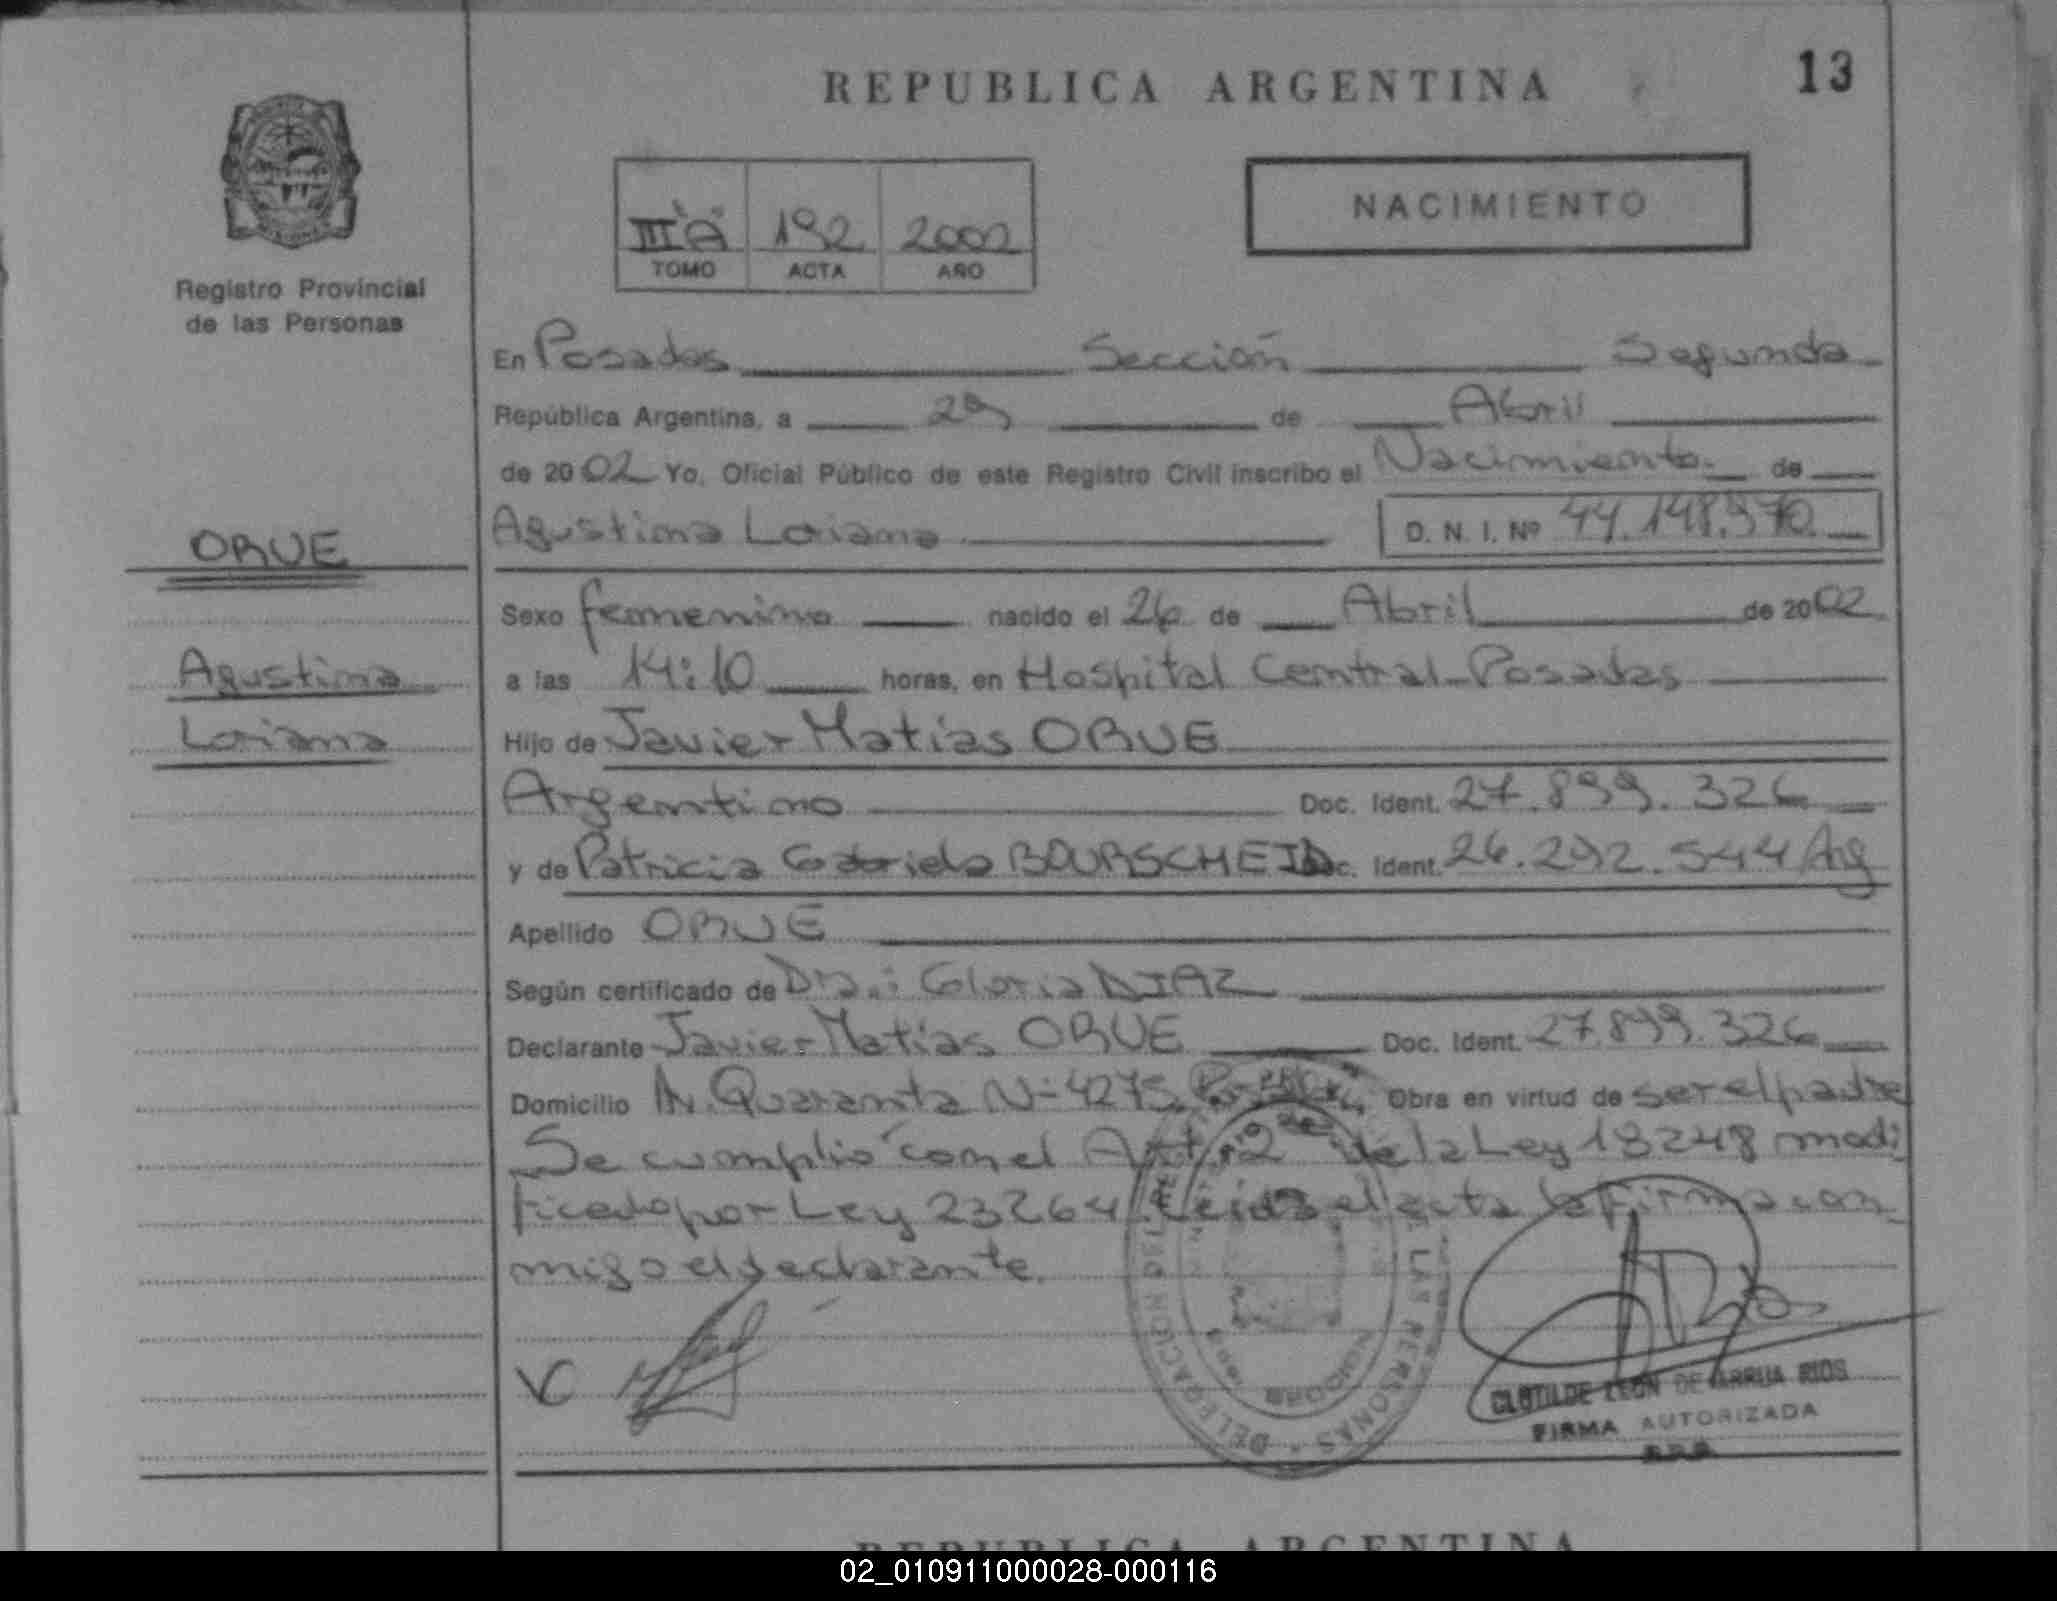 REPUBLICA ARGENTINA
13
NACIMIENTO
III "A" 192 2002
TOMO ACTA AÑO
Registro Provincial
de las Personas
En Posadas Sección Segunda
República Argentina, a 29 de Abril
de 2002 Yo, Oficial Público de este Registro Civil inscribo el Nacimiento de
Agustina Loriana D. N. I. Nº 44.148.970
ORUE
Sexo femenino nacido el 26 de Abril de 2002
Agustina
a las 14:10 horas, en Hospital Central-Posadas
Loriana
Hijo de Javier Matías ORUE
Argentino Doc. Ident. 27.899.326
y de Patricia Gabriela BOURSCHEID Doc. Ident. 26.292.544 Arg
Apellido ORUE
Según certificado de Dra.: Gloria DIAZ
Declarante Javier Matías ORUE Doc. Ident. 27.899.326
Domicilio Av. Quaranta Nº 4275 Posadas Obra en virtud de ser el padre
Se cumplió con el Art. 2 de la Ley 18248 modi
ficado por Ley 23264 Leida el acta la firma con
migo el declarante.
CLOTILDE LEON DE ARRUA RIOS
FIRMA AUTORIZADA
LAS PERSONAS - DELEGACION
REPUBLICA ARGENTINA
02_010911000028-000116